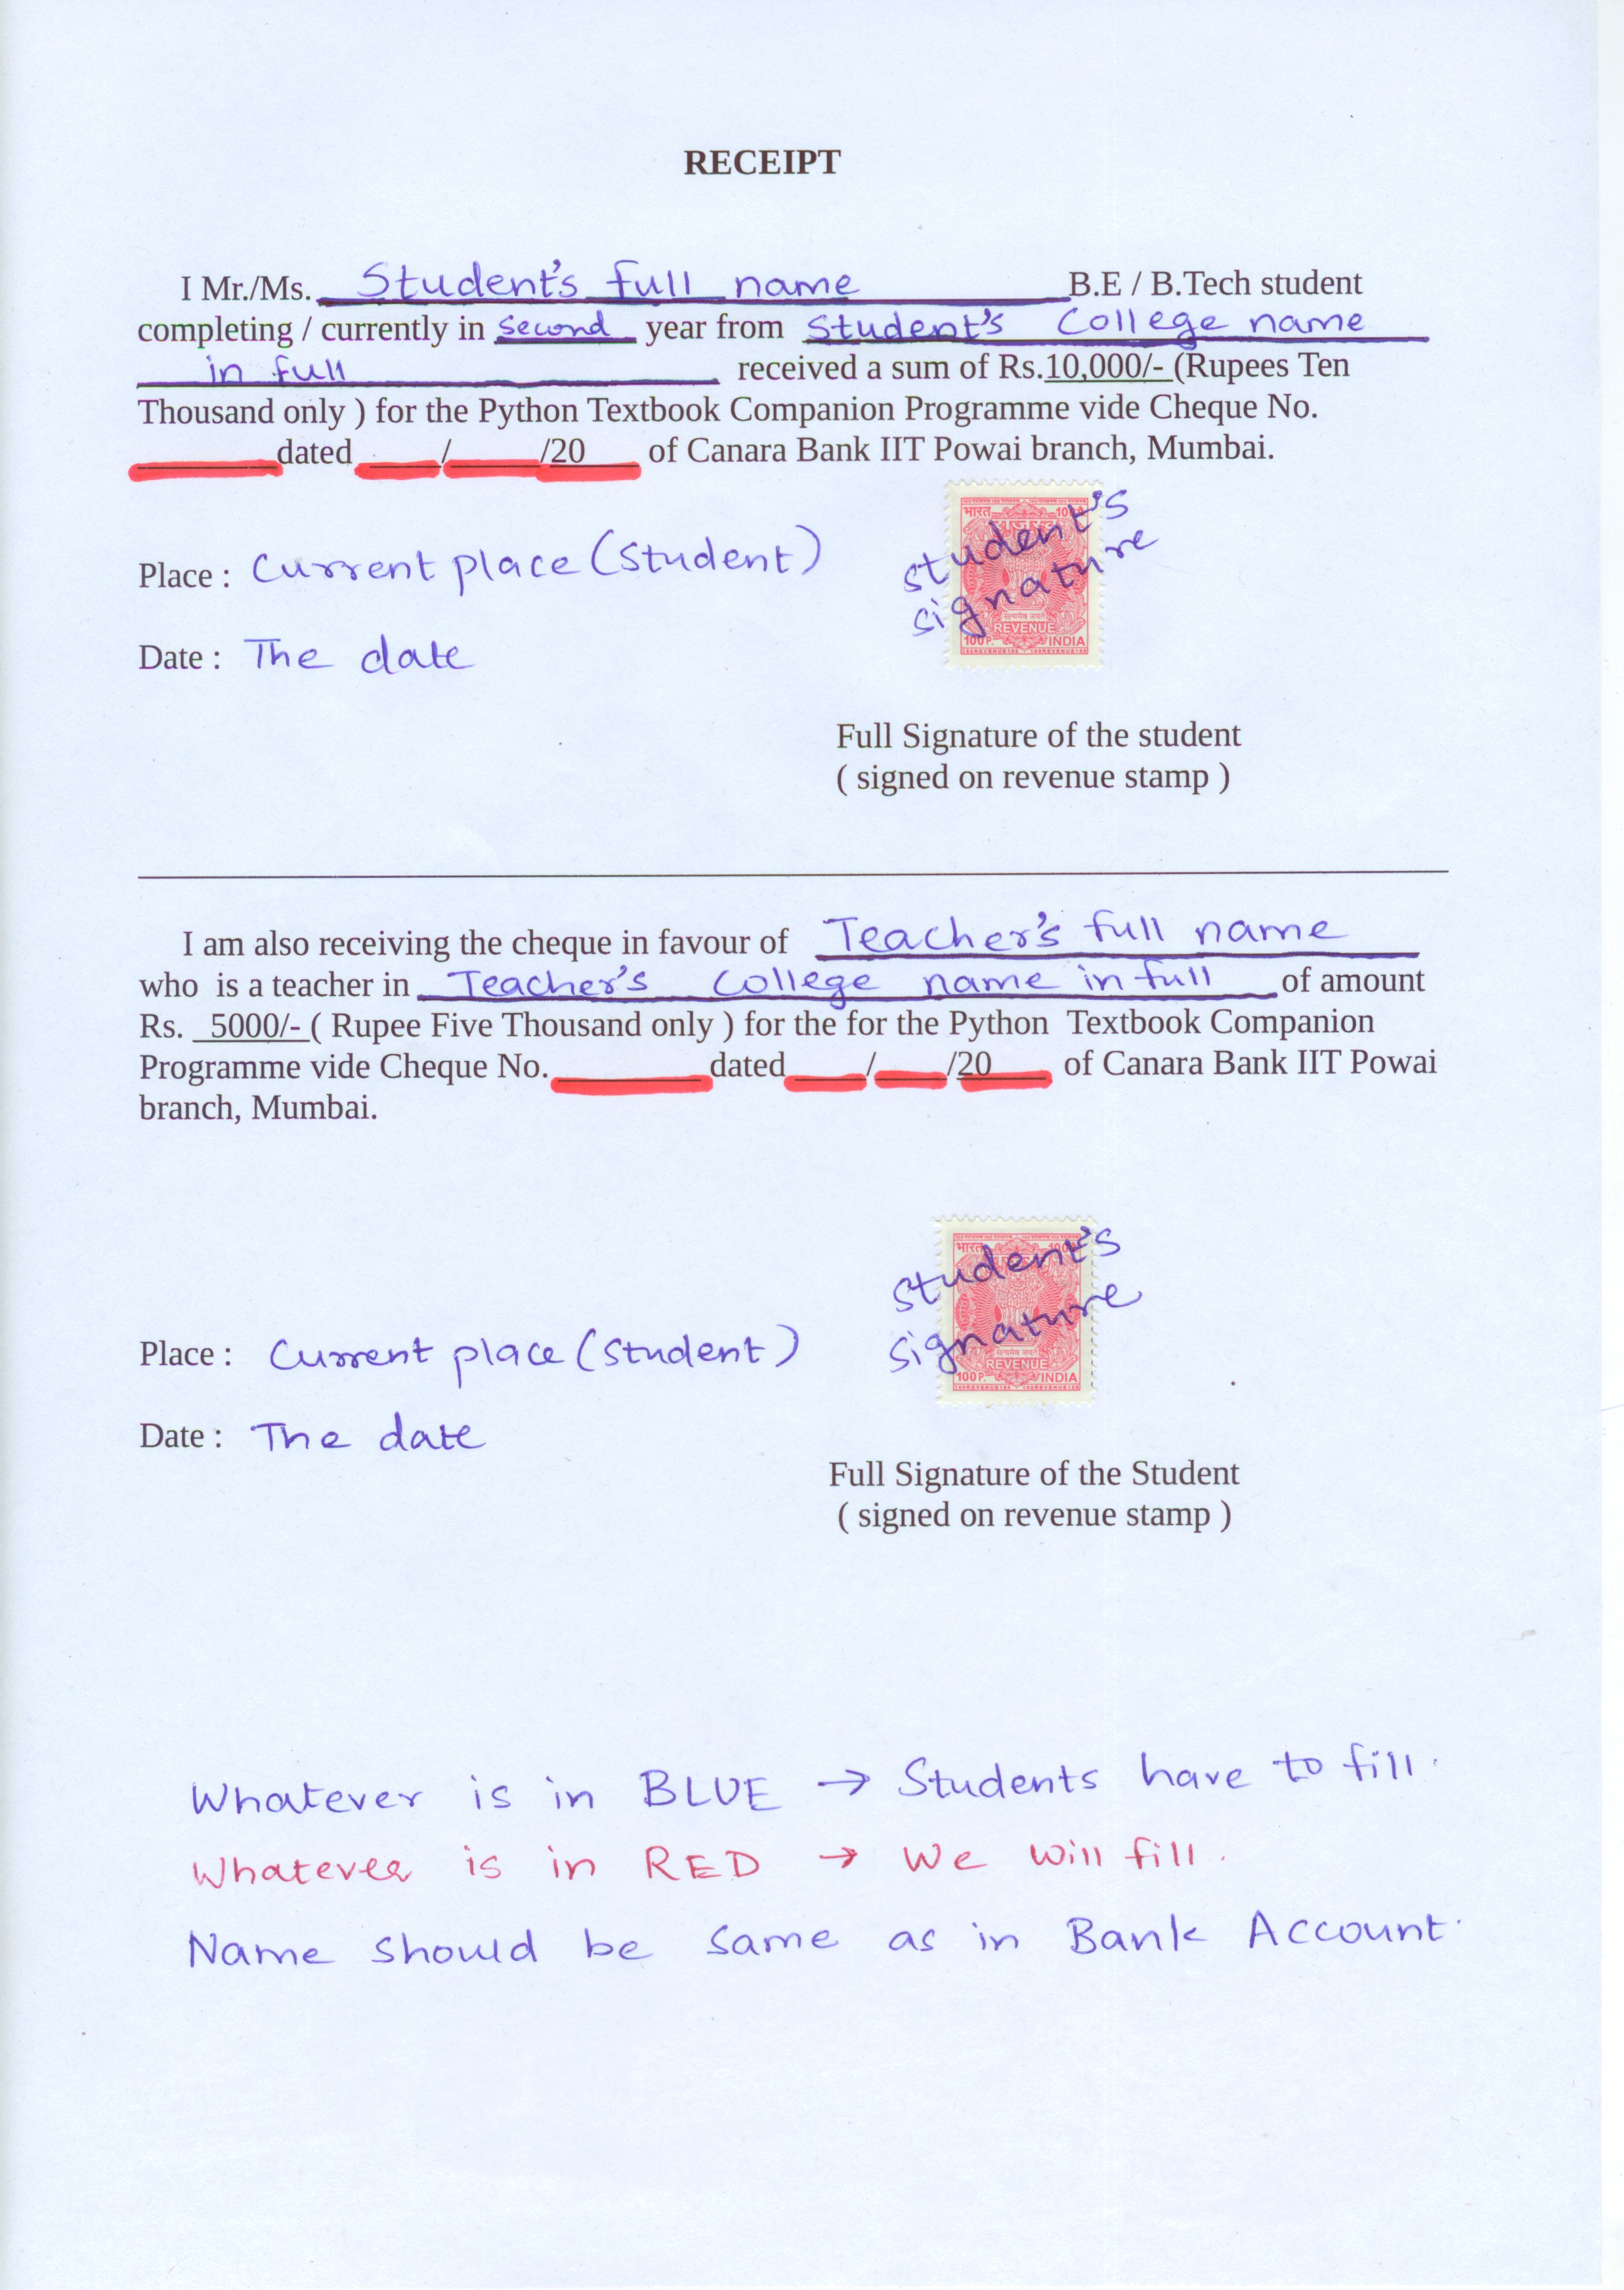 RECEIPT
I Mr./Ms. Student's full name B.E / B.Tech student
completing / currently in second year from Student's College name
in full received a sum of Rs.10,000/- (Rupees Ten
Thousand only ) for the Python Textbook Companion Programme vide Cheque No.
dated / /20 of Canara Bank IIT Powai branch, Mumbai.
भारत 100
Student's
signature
सत्यमेव जयते
REVENUE
100P. INDIA
Place : Current place (Student)
Date : The date
Full Signature of the student
( signed on revenue stamp )
I am also receiving the cheque in favour of Teacher's full name
who is a teacher in Teacher's College name in full of amount
Rs. 5000/- ( Rupee Five Thousand only ) for the for the Python Textbook Companion
Programme vide Cheque No. dated / /20 of Canara Bank IIT Powai
branch, Mumbai.
भारत 100
Student's
signature
सत्यमेव जयते
REVENUE
100P. INDIA
Place : Current place (Student)
Date : The date
Full Signature of the Student
( signed on revenue stamp )
Whatever is in BLUE → Students have to fill.
Whatever is in RED → We will fill.
Name should be same as in Bank Account.